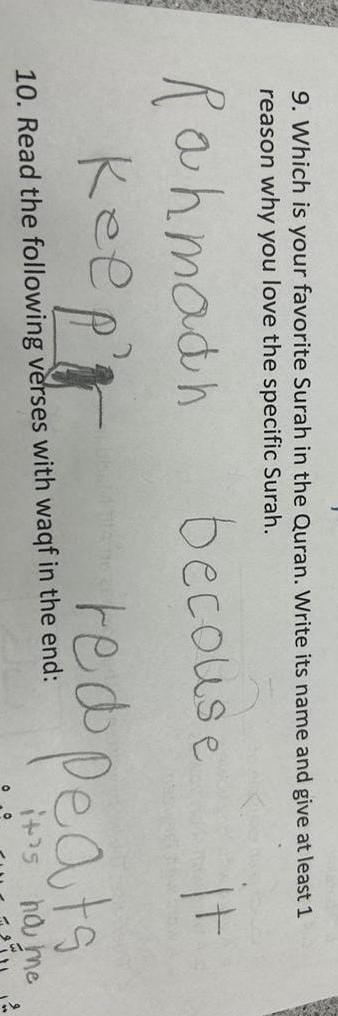 9. Which is your favorite Surah in the Quran. Write its name and give at least 1
reason why you love the specific Surah.
Rahmadh becouse it
keep redpeats
it's name
10. Read the following verses with waqf in the end: